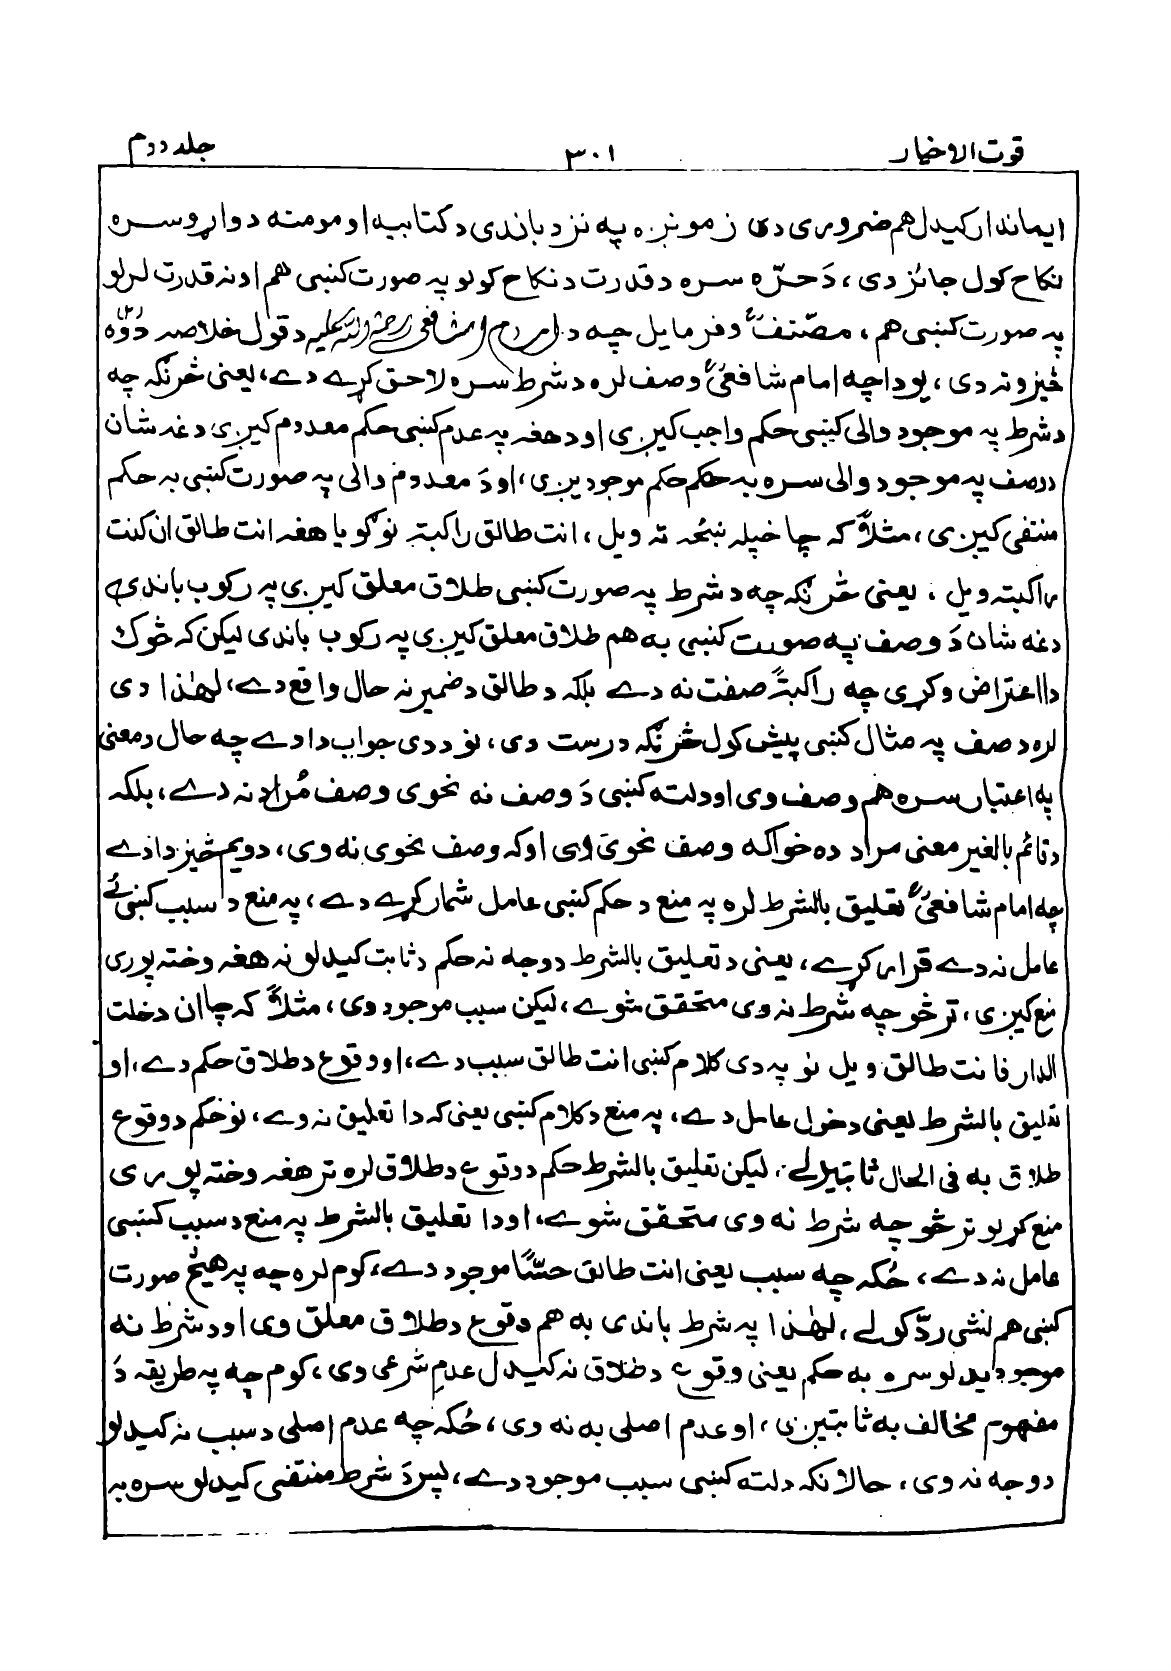 قوت الاخیار ۳۰۱ جلد دوم
ایماندار کیدل هم ضروری دی زمونږه په نزد باندی د کتابیه او مومنه دواړو سره
نکاح کول جائز دی، دَ حرّه سره د قدرت د نکاح کولو په صورت کښی هم او نه قدرت لرلو
په صورت کښی هم، مصنفؒ وفرمایل چه د امام شافعی رحمة الله علیه د قول خلاصه دوه
څیزونه دی، یو دا چه امام شافعیؒ وصف لره د شرط سره لاحق کړے دے، یعنی څرنګه چه
د شرط په موجود والی کښی حکم واجب کیږی او د هغه په عدم کښی حکم معدوم کیږی دغه شان
د وصف په موجود والی سره به حکم حکم موجودیږی، او دَ معدوم والی په صورت کښی به حکم
منتفی کیږی، مثلاً که چا خپله ښځه ته ویل، انت طالق راکبة نو ګویا هغه انت طالق ان کنت
راکبته ویل، یعنی څرنګه چه د شرط په صورت کښی طلاق معلق کیږی په رکوب باندی
دغه شان دَ وصف په صورت کښی به هم طلاق معلق کیږی په رکوب باندی لیکن که څوک
دا اعتراض وکړی چه راکبةً صفت نه دے بلکه د طالق د ضمیر نه حال واقع دے، لهٰذا دی
لره د صف په مثال کښی پیش کول څرنګه درست دی، نو ددی جواب دا دے چه حال د معنی
په اعتبار سره هم وصف وی او دلته کښی دَ وصف نه نحوی وصف مُراد نه دے، بلکه
د قائم بالغیر معنی مراد ده خواکه وصف نحوی وی او که وصف نحوی نه وی، دویم څیز دا دے
چه امام شافعیؒ تعلیق بالشرط لره په منع د حکم کښی عامل شمار کړے دے، په منع د سبب کښی ئے
عامل نه دے قرار کړے، یعنی د تعلیق بالشرط د وجه نه حکم د ثابت کیدلو نه هغه وخته پوری
منع کیږی، تر څو چه شرط نه وی متحقق شوے، لیکن سبب موجود وی، مثلاً که چا ان دخلت
الدار فانت طالق ویل نو په دی کلام کښی انت طالق سبب دے، او وقوع د طلاق حکم دے، او
تعلیق بالشرط یعنی دخول عامل دے، په منع د کلام کښی یعنی که دا تعلیق نه وے، نو حکم د وقوع
طلاق به فی الحال ثابتیدلے، لیکن تعلیق بالشرط حکم د وقوع د طلاق لره تر هغه وخته پوری
منع کړیو تر څو چه شرط نه وی متحقق شوے، او دا تعلیق بالشرط په منع د سبب کښی
عامل نه دے، ځکه چه سبب یعنی انت طالق حسّاً موجود دے، کوم لره چه په هیڅ صورت
کښی هم نشی ردّ کولے، لهٰذا په شرط باندی به هم وقوع د طلاق معلق وی او د شرط نه
موجودیدلو سره به حکم یعنی وقوع د طلاق نه کیدل عدم شرعی وی، کوم چه په طریقه دَ
مفهوم مخالف به ثابتیږی، او عدم اصلی به نه وی، ځکه چه عدم اصلی د سبب نه کیدلو
د وجه نه وی، حالانکه دلته کښی سبب موجود دے، پس دَ شرط منتفی کیدلو سره به